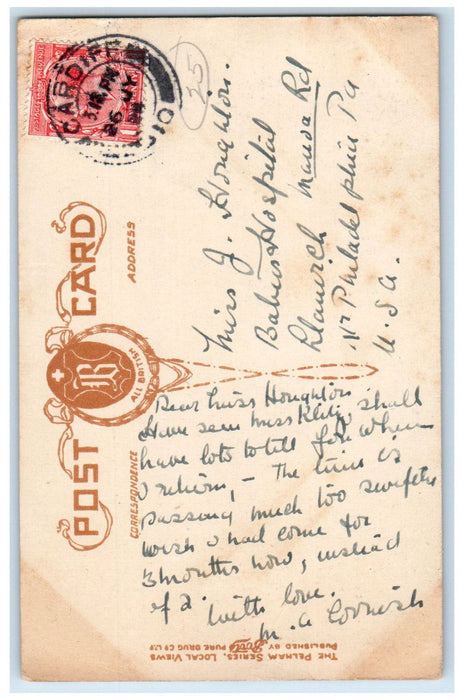 POST CARD
ALL BRITISH
B
CORRESPONDENCE
ADDRESS
CARDIFF
25
Miss J. Houghton.
Babies Hospital
Llanerch Manoa Rd
Nr Philadelphia Pa
U.S.A.
Dear Miss Houghton
Have seen Miss shall
have lots to tell you when
I return, - The time is
passing much too swiftly
wish I had come for
3 months now, instead
of 2. With love.
M. A. Cornish
THE PELHAM SERIES, LOCAL VIEWS
PUBLISHED BY Boots PURE DRUG CO LTD